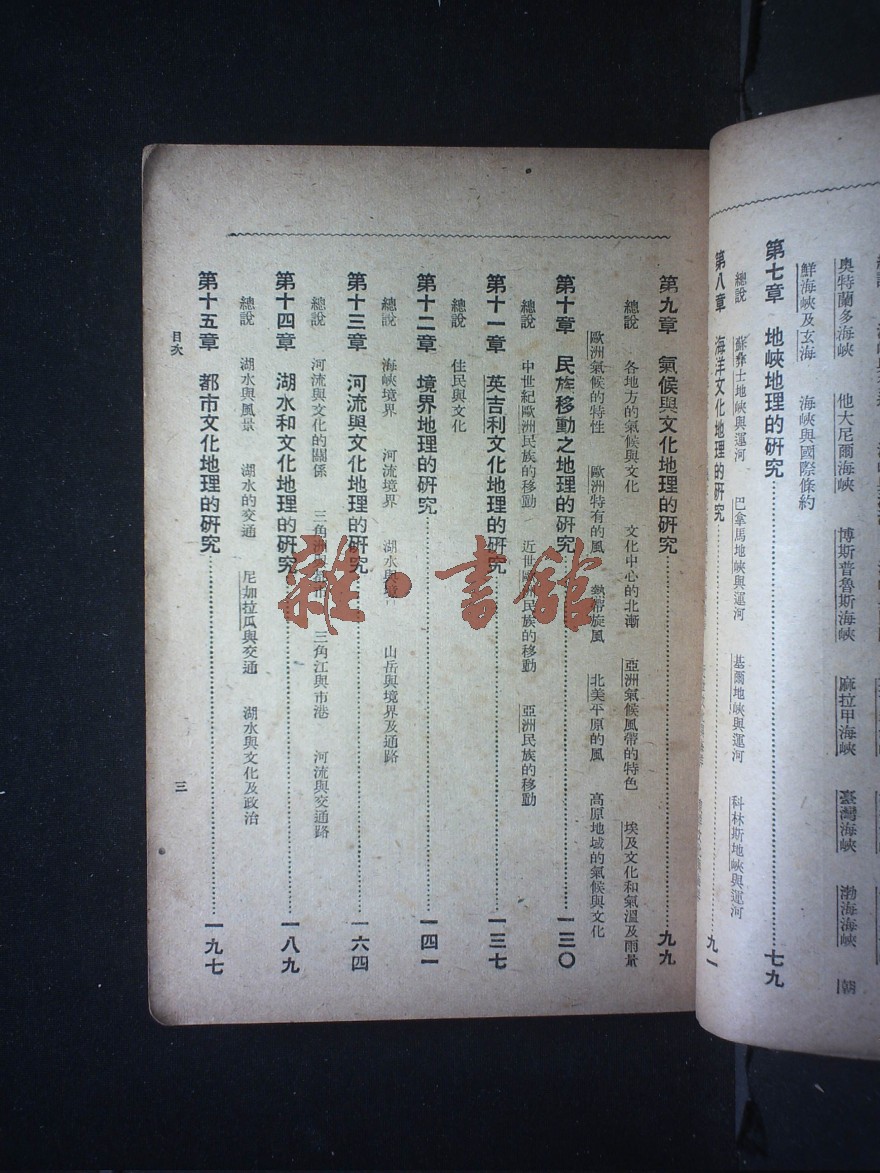 奧特蘭多海峽 他大尼爾海峽 博斯普魯斯海峽 麻拉甲海峽 臺灣海峽 渤海海峽 朝
鮮海峽及玄海 海峽與國際條約
第七章 地峽地理的研究 七九
總說 蘇彝士地峽與運河 巴拿馬地峽與運河 基爾地峽與運河 科林斯地峽與運河
第八章 海洋文化地理的研究 九一
第九章 氣候與文化地理的研究 九九
總說 各地方的氣候與文化 文化中心的北漸 亞洲氣候風帶的特色 埃及文化和氣溫及雨量
歐洲氣候的特性 歐洲特有的風 熱帶旋風 北美平原的風 高原地域的氣候與文化
第十章 民族移動之地理的研究 一三〇
總說 中世紀歐洲民族的移動 近世歐洲民族的移動 亞洲民族的移動
第十一章 英吉利文化地理的研究 一三七
總說 住民與文化
第十二章 境界地理的研究 一四一
總說 海峽境界 河流境界 湖水與境 山岳與境界及通路
第十三章 河流與文化地理的研究 一六四
總說 河流與文化的關係 三角洲 三角江與市港 河流與交通路
第十四章 湖水和文化地理的研究 一八九
總說 湖水與風景 湖水的交通 尼加拉瓜與交通 湖水與文化及政治
第十五章 都市文化地理的研究 一九七
目次
三
雜·書館